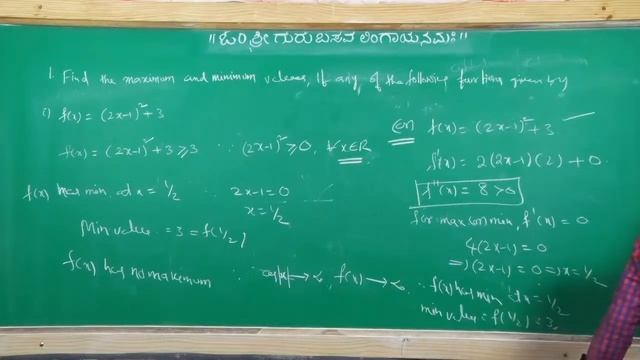 "ಓಂ ಶ್ರೀ ಗುರುಬಸವ ಲಿಂಗಾಯ ನಮಃ"
1. Find the maximum and minimum values, if any, of the following functions given by
i) f(x) = (2x-1)² + 3
f(x) = (2x-1)² + 3 ≥ 3 ∵ (2x-1)² ≥ 0, ∀ x∈R
f(x) has min. at x = 1/2 ∵ 2x-1=0
x = 1/2
Min value = 3 = f(1/2)
f(x) has no maximum ∵ x → ∞, f(x) → ∞
(OR) f(x) = (2x-1)² + 3
f'(x) = 2(2x-1)(2) + 0
f''(x) = 8 > 0
for max (or) min, f'(x) = 0
4(2x-1) = 0
=> (2x-1) = 0 => x = 1/2
∴ f(x) has min at x = 1/2
min value = f(1/2) = 3